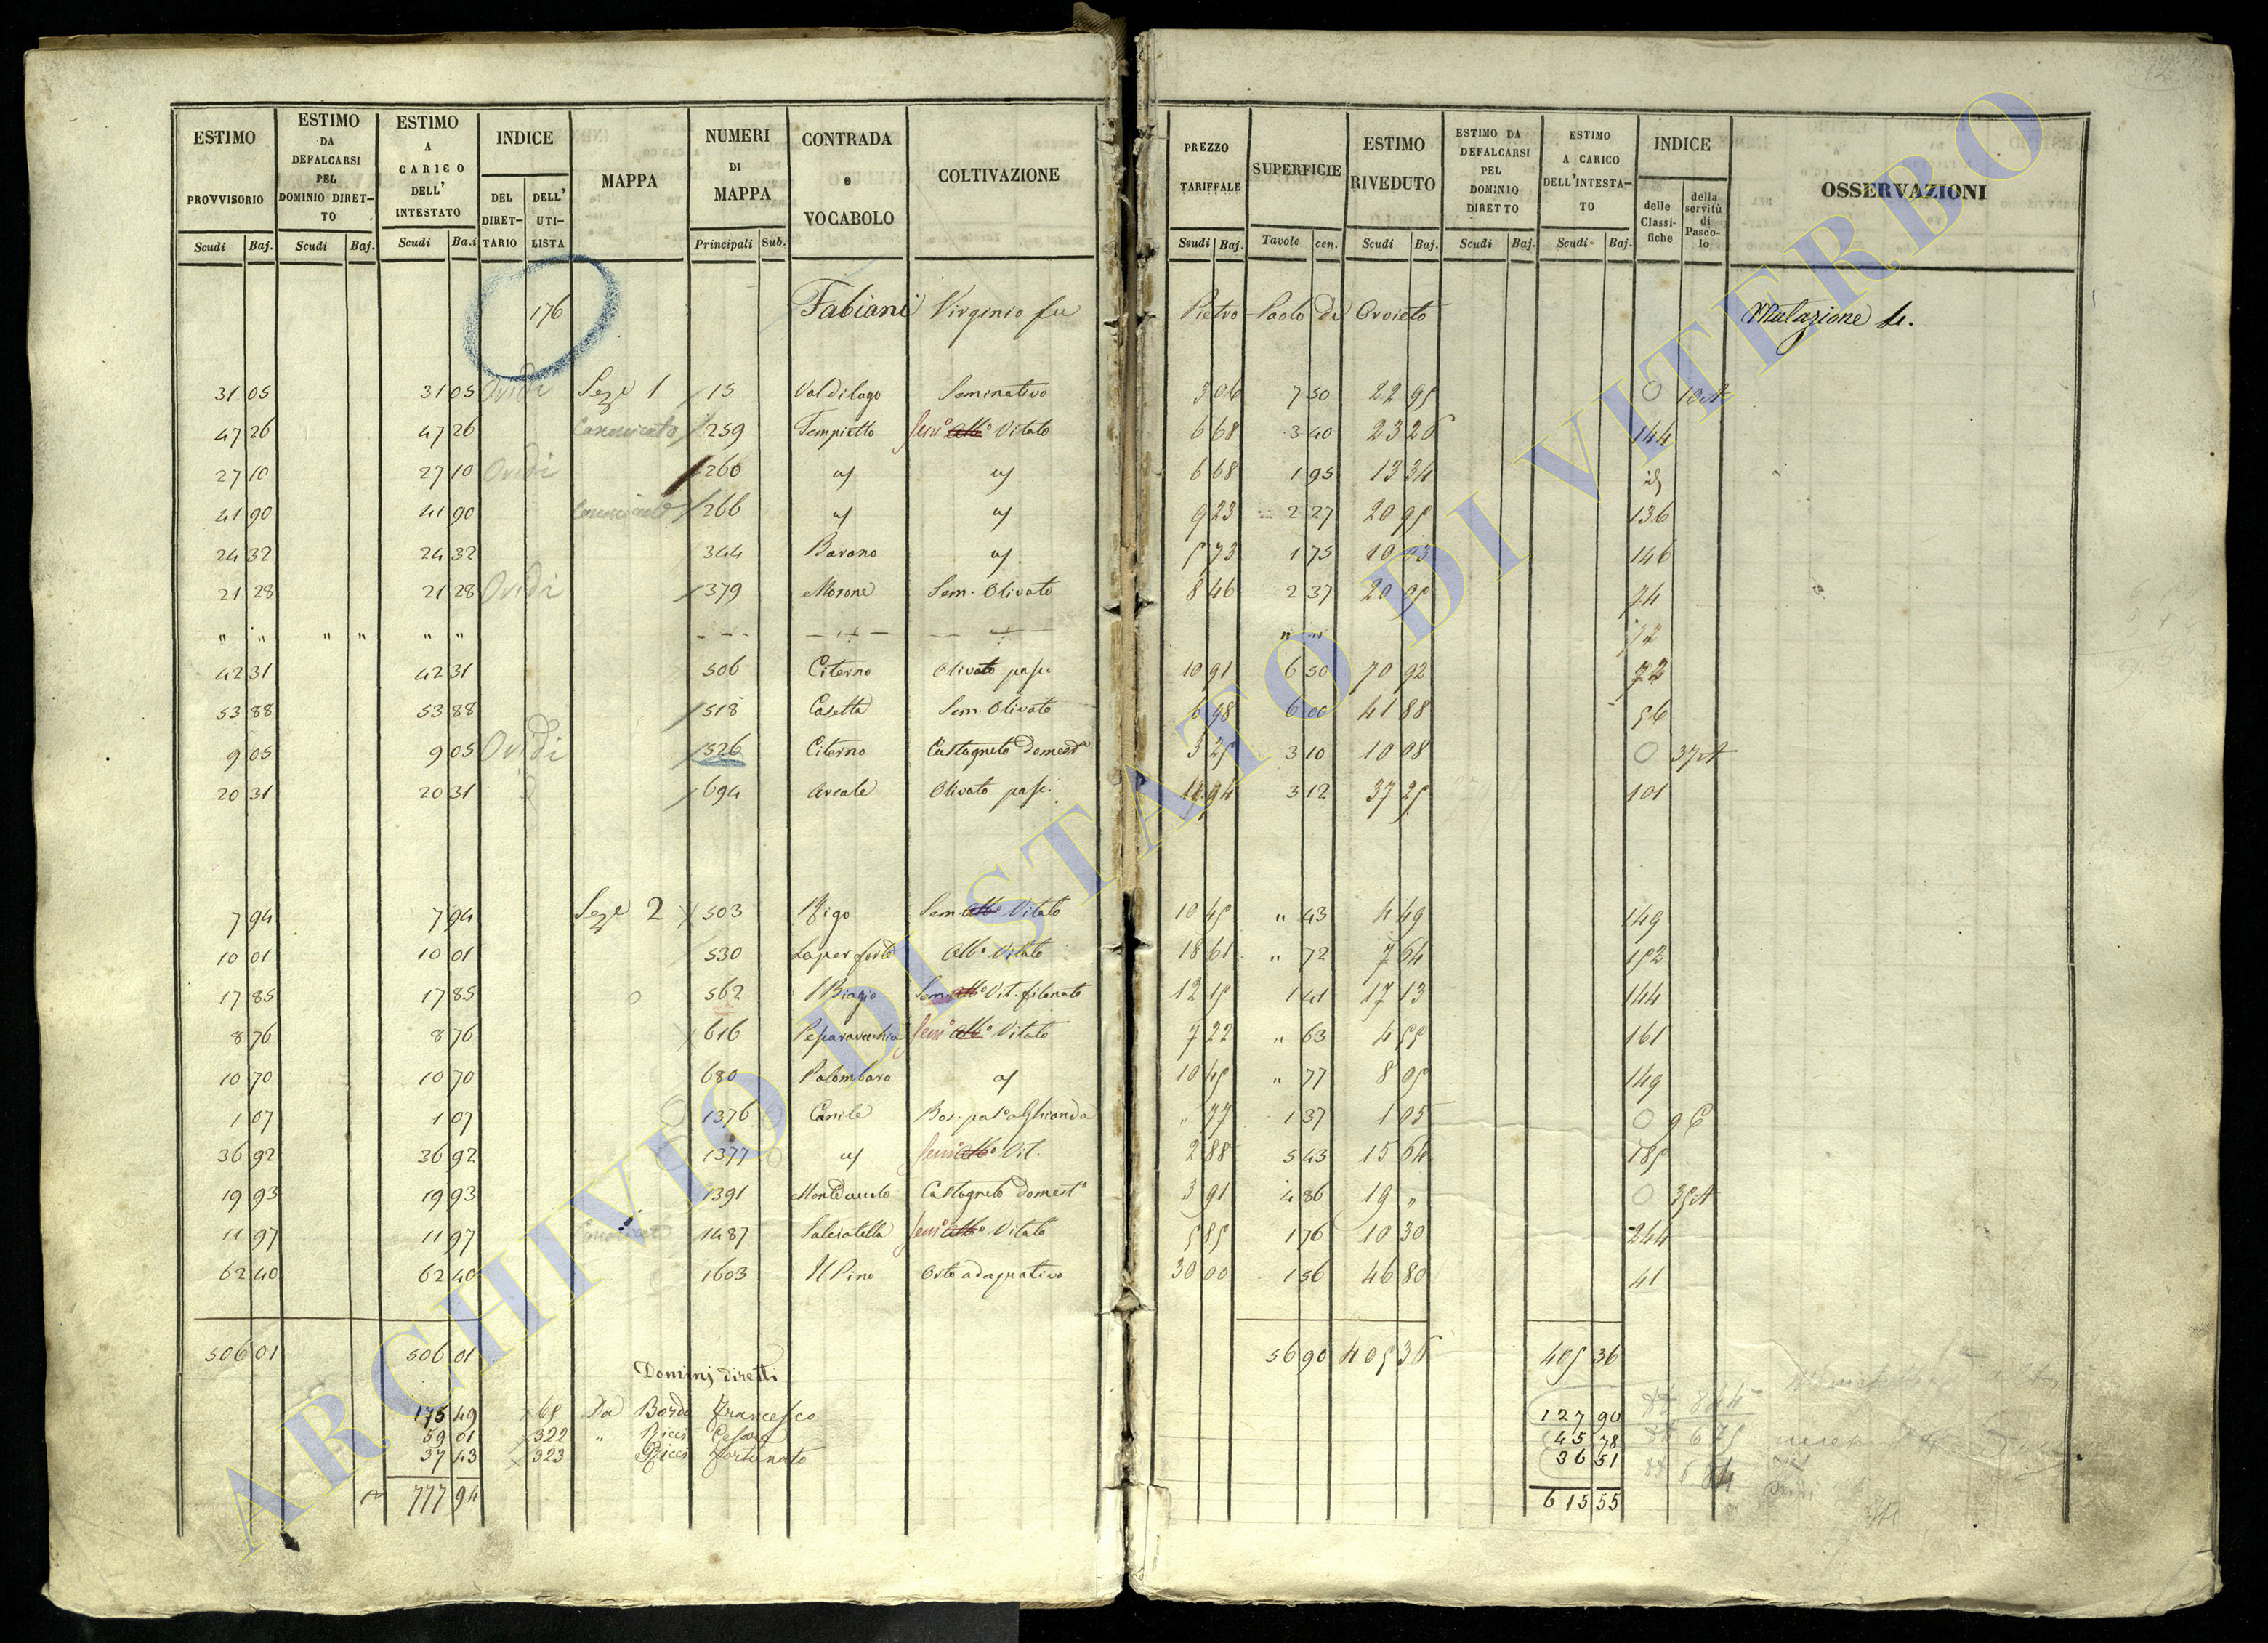 ESTIMO PROVVISORIO Scudi Baj. ESTIMO DA DEFALCARSI PEL DOMINIO DIRETTO Scudi Baj. ESTIMO A CARICO DELL' INTESTATO Scudi Ba.i INDICE DEL DIRETTARIO DELL' UTILISTA MAPPA NUMERI DI MAPPA Principali Sub. CONTRADA o VOCABOLO COLTIVAZIONE PREZZO TARIFFALE Scudi Baj. SUPERFICIE Tavole cen. ESTIMO RIVEDUTO Scudi Baj. ESTIMO DA DEFALCARSI PEL DOMINIO DIRETTO Scudi Baj. ESTIMO A CARICO DELL'INTESTATO Scudi Baj. INDICE delle Classifiche della servitù di Pascolo OSSERVAZIONI
176 Fabiani Virginio fu Pietro Paolo di Orvieto Mutazione
31 05 31 05 Ovidi Sez.e 1 15 Valdilago Seminativo 3 06 7 50 22 95 0
47 26 47 26 Canonicato 259 Tempietto Sem.o Alb.o Vitato 6 68 3 40 23 26 144
27 10 27 10 Ovidi 260 6 68 1 95 13 34 id
41 90 41 90 266 9 23 2 27 20 95 136
24 32 24 32 344 Barano 5 73 1 75 10 03 146
21 28 21 28 Ovidi 379 Morone Sem. Olivato 8 46 2 37 20 05 74
" " " " " " - - - " " 72
42 31 42 31 506 Citerno Olivato pasc. 10 91 6 50 70 92 72
53 88 53 88 518 Casetta Sem. Olivato 6 98 6 00 41 88 56
9 05 9 05 Ovidi 526 Citerno Castagneto domest.o 3 25 3 10 10 08 0 37 A
20 31 20 31 694 Arcale Olivato pasc. 11 94 3 12 37 25 101
7 94 7 94 Sez.e 2 503 Rigo Sem. Alb.o Vitato 10 45 " 43 4 49 149
10 01 10 01 530 Alb.o Vitato 18 61 " 72 7 64 152
17 85 17 85 562 S Biagio Sem. Alb.o Vit. filonato 12 15 1 41 17 13 144
8 76 8 76 616 Sem.o Alb.o Vitato 7 22 " 63 4 55 161
10 70 10 70 680 Palombaro 10 45 " 77 8 05 149
1 07 1 07 1376 Canile Bos. pas.o a Ghianda " 77 1 37 1 05 0 9 C
36 92 36 92 1377 Sem.o Alb.o Vit. 2 88 5 43 15 64 185
19 93 19 93 1391 Castagneto domest.o 3 91 4 86 19 " 0 35 A
11 97 11 97 1487 Salciatella Sem.o Alb.o Vitato 5 85 1 76 10 30 244
62 40 62 40 1603 Il Pino Orto adaquativo 30 00 1 56 46 80 41
506 01 506 01 56 90 405 36 405 36
Dominj diretti
175 49 65 Da Francesco 127 90
59 01 322 " Ricci Cesare 45 78
37 43 323 Ricci Fortunato 36 51
777 94 615 55
ARCHIVIO DI STATO DI VITERBO